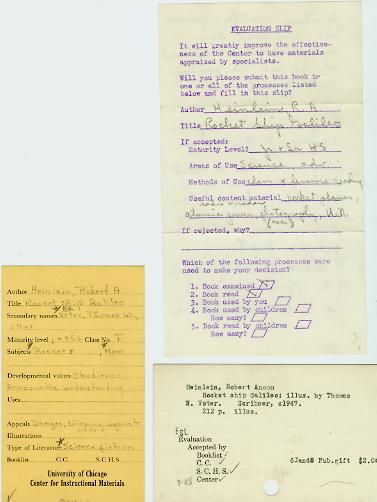 EVALUATION SLIP
It will greatly improve the effective-
ness of the Center to have materials
appraized by specialists.
Will you please submit this book to
one or all of the processes listed
below and fill in this slip?
Author Heinlein, R. A
Title Rocket Ship Galileo
If accepted:
Maturity Level? Jr & Sr HS
Areas of Use Science, adv.
Methods of Use class & leisure reading
Useful content material rocket planes,
atomic power, photography, U.N.
(over)
If rejected, why?
Which of the following processes were
used to make your decision?
1. Book examined
2. Book read
3. Book used by you
4. Book used by children
How many?
5. Book read by children
How many?
Author Heinlein, Robert A
Title Rocket Ship Galileo
Secondary names Voter, Thomas W.,
illus.
Maturity level Class No. F
Subjects Rockets, Moon
Developmental values Obedience,
Democratic understanding
Uses
Appeals Danger, winning against
Illustrations
Type of Literature Science fiction
Booklist C.C. S.C.H.S.
University of Chicago
Center for Instructional Materials
Heinlein, Robert Anson
Rocket ship Galileo; illus. by Thomas
W. Voter. Scribner, c1947.
212 p. illus.
Evaluation
Accepted by
Booklist
C. C.
S. C. H. S.
Center
6Jan48 Pub.gift $2.0